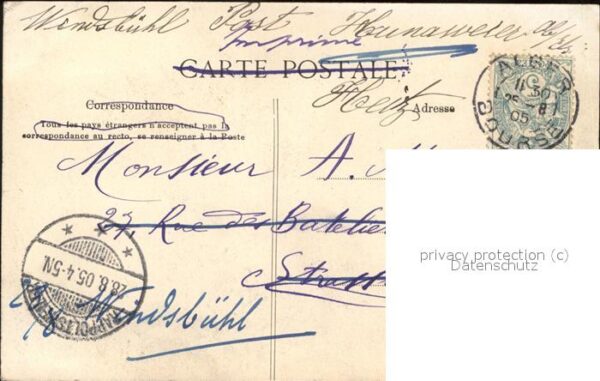 Windsbühl Post Hunaweier
Imprimé
CARTE POSTALE
Correspondance
Adresse
Tous les pays étrangers n'acceptent pas la
correspondance au recto, se renseigner à la Poste
Monsieur A.
27, Rue des Batelier
Strass
Windsbühl
ALGER
11 50
25 8
05
BOURSE
RAPPOLTSW
28.8.05.4-5N.
privacy protection (c)
Datenschutz